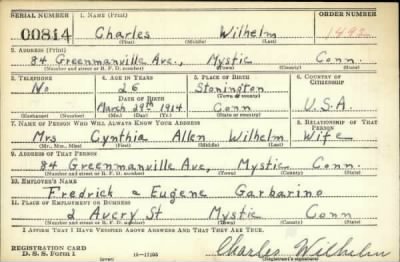 SERIAL NUMBER 1. NAME (Print) ORDER NUMBER
00814 Charles Wilhelm 1492
(First) (Middle) (Last)
2. ADDRESS (Print)
84 Greenmanville Ave., Mystic Conn.
(Number and street or R. F. D. number) (Town) (County) (State)
3. TELEPHONE 4. AGE IN YEARS 5. PLACE OF BIRTH 6. COUNTRY OF CITIZENSHIP
No 26 Stonington
DATE OF BIRTH (Town or county)
March 29th 1914 Conn U.S.A.
(Exchange) (Number) (Mo.) (Day) (Yr.) (State or country)
7. NAME OF PERSON WHO WILL ALWAYS KNOW YOUR ADDRESS 8. RELATIONSHIP OF THAT PERSON
Mrs Cynthia Allen Wilhelm Wife
(Mr., Mrs., Miss) (First) (Middle) (Last)
9. ADDRESS OF THAT PERSON
84 Greenmanville Ave, Mystic Conn.
(Number and street or R. F. D. number) (Town) (County) (State)
10. EMPLOYER'S NAME
Fredrick & Eugene Garbarino
11. PLACE OF EMPLOYMENT OR BUSINESS
2 Avery St Mystic Conn
(Number and street or R. F. D. number) (Town) (County) (State)
I AFFIRM THAT I HAVE VERIFIED ABOVE ANSWERS AND THAT THEY ARE TRUE.
REGISTRATION CARD
D. S. S. Form 1 (over) 16-17105 Charles Wilhelm
(Registrant's signature)